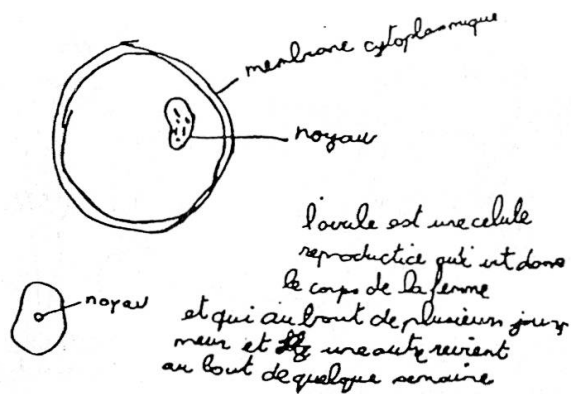 membrane cytoplasmique
noyau
l'ovule est une celule
reproductice qui vit dans
le corps de la femme
noyau
et qui au bout de plusieurs jours
meur et une autre revient
au bout de quelque semaine